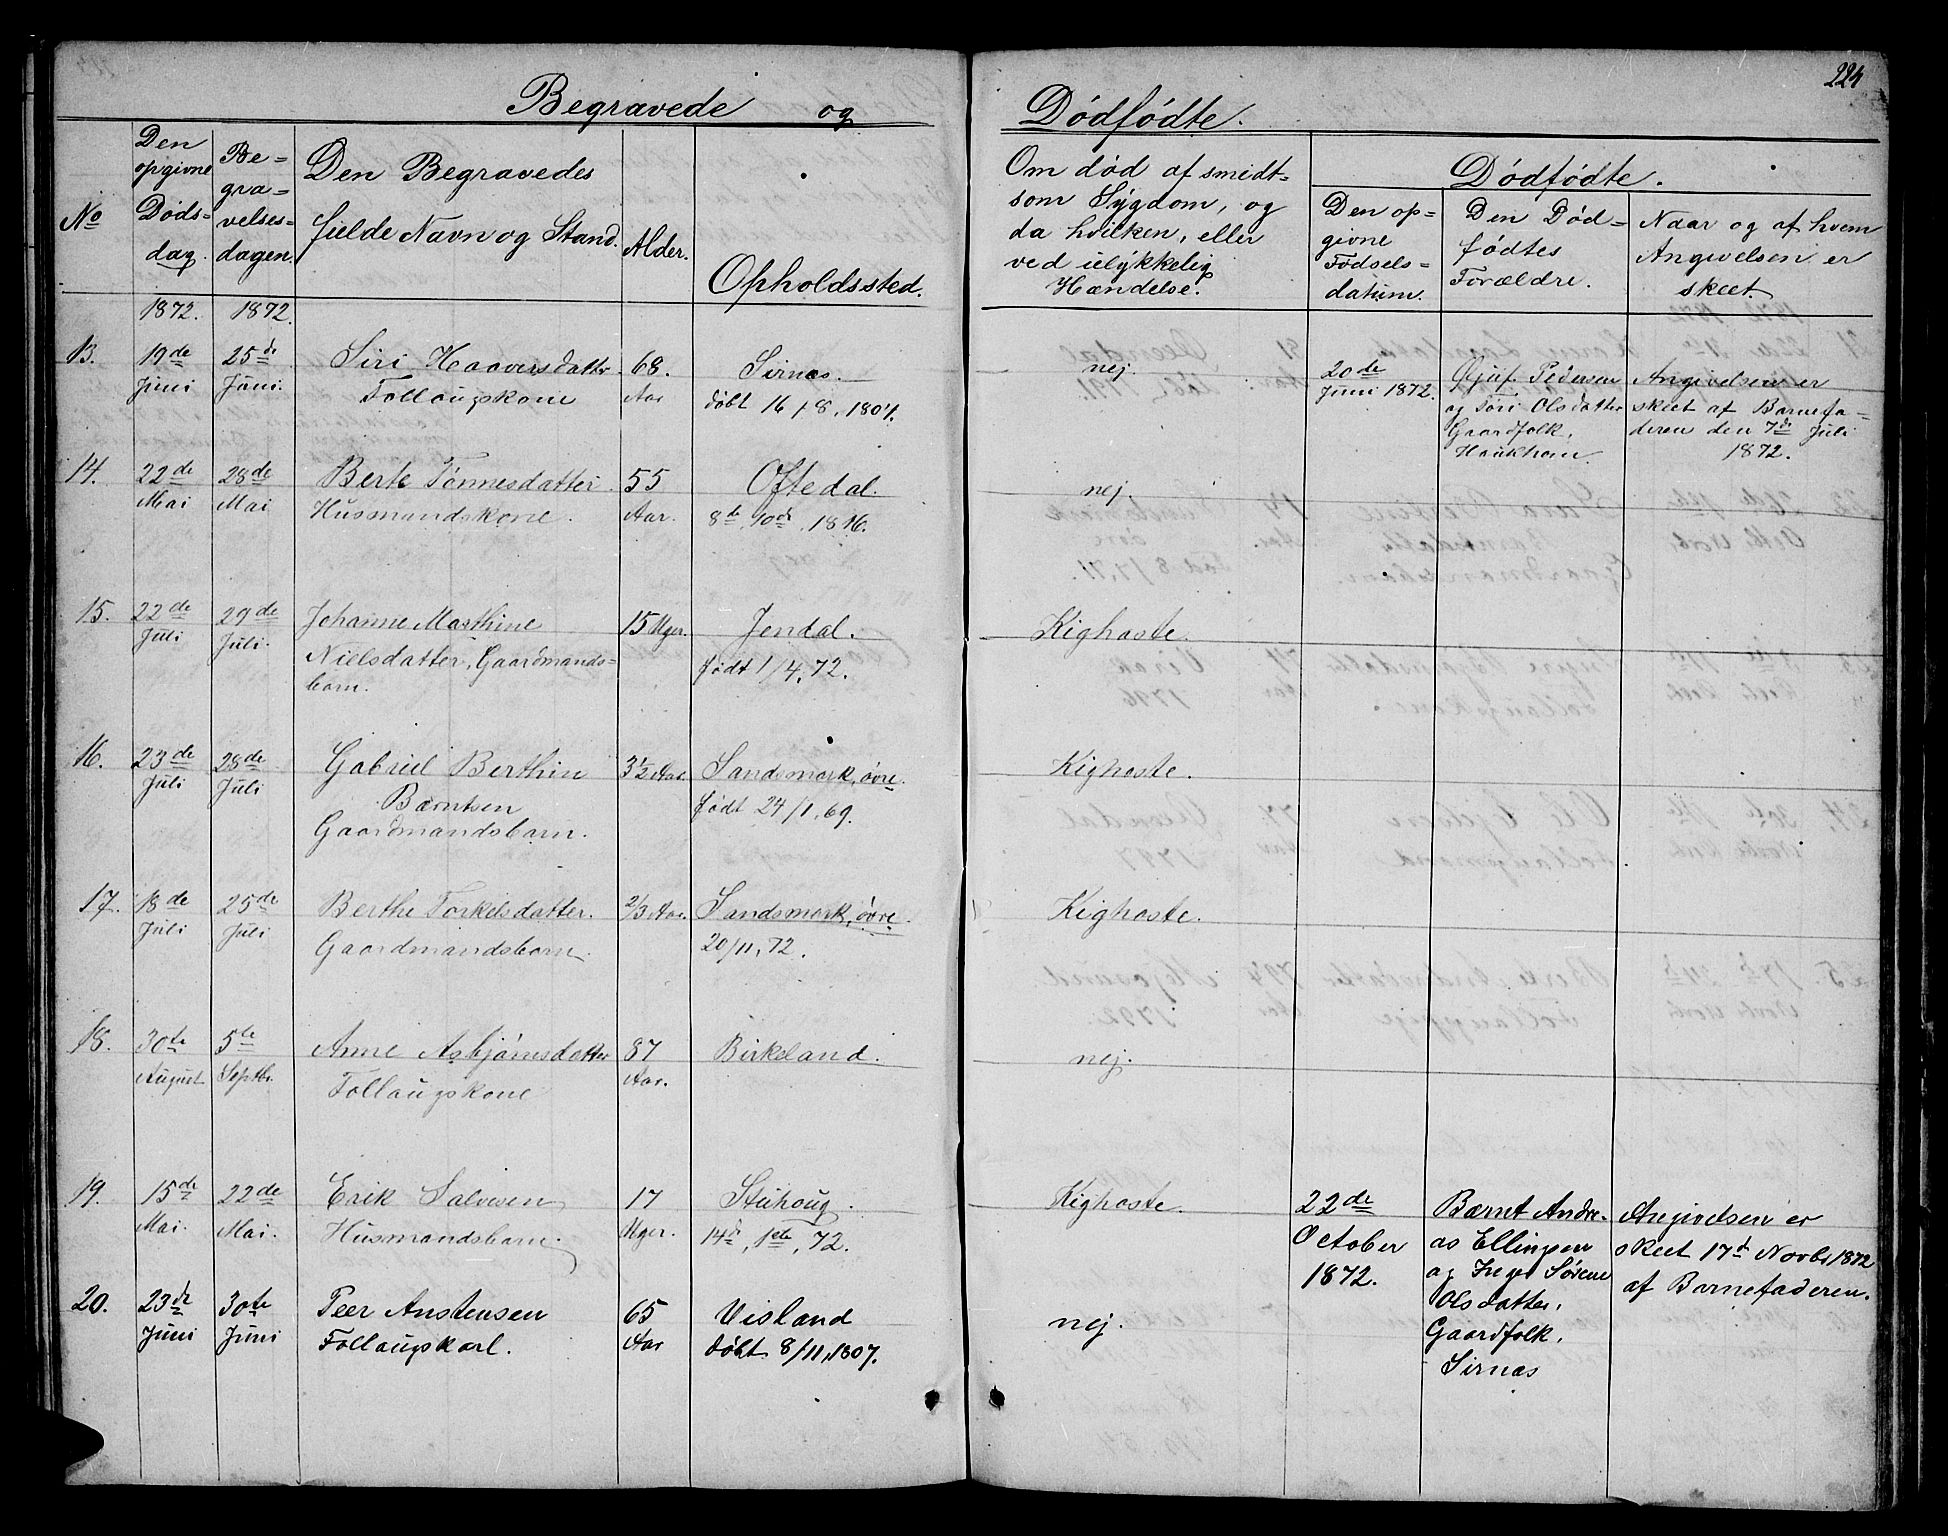 224
Begravede og Dødfødte.
No
Den opgivne Døds-dag.
Be-gra-velses-dagen.
Den Begravedes fulde Navn og Stand.
Alder.
Opholdssted.
Om død af smidt-
som Sygdom, og
da hvilken, eller
ved ulykkelig
Hændelse.
Dødfødte.
Den op-
givne
Fødsels-
datum.
Den Død-
fødtes
Forældre.
Naar og af hvem
Angivelsen er
skeet.
1872. 1872.
13. 19de 25de Siri Haaversdatter 68. Sirnæs. nej.
Juni Juni. Follaugskone Aar døbt 16/8, 1804.
20de
Juni 1872.
Pedersen
og Siri Olsdatter
Gaardfolk,
Haukhom.
Angivelsen er
skeet af Barnefa-
deren den 7de Juli
1872.
14. 22de 28de Berte Tønnesdatter 55 Oftedal. nej.
Mai Mai Husmandskone. Aar. 8de, 10de, 1816.
15. 22de 29de Johanne Marthine 15 Uger. Jendal. Kighoste.
Juli Juli. Nielsdatter, Gaardmands- født 1/4, 72.
barn.
16. 23de 28de Gabriel Berthin 3 1/2 Aar. Sandsmark, øvre. Kighoste.
Juli Juli Bærntsen født 24/1, 69.
Gaardmandsbarn.
17. 18de 25de Berthe Torkelsdatter. 2/3 Aar. Sandsmark, øvre. Kighoste.
Juli Juli Gaardmandsbarn. 20/11, 72.
18. 30te 5te Anne Asbjørnsdatter 87 Birkeland. nej.
August Septbr. Follaugskone Aar.
19. 15de 22de Erik Salvesen 17 Stuhoug. Kighoste.
Mai. Mai. Husmandsbarn. Uger. 14de, 1ste, 72.
22de
October
1872.
Bærnt Andre-
as Ellingsen
og Inger Sørene
Olsdatter,
Gaardfolk,
Sirnæs
Angivelsen er
skeet 17de Novbr, 1872
af Barnefaderen.
20. 23de 30te Peer Anstensen 65 Visland nej.
Juni Juni Follaugskarl. Aar døbt 8/11, 1807.